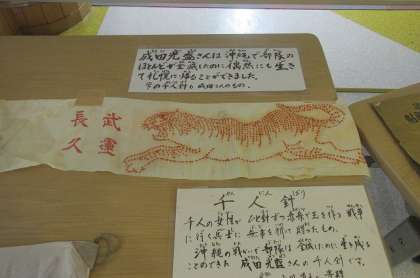 成田光盛さんは沖縄で部隊の
ほとんどが全滅したのに偶然にも生き
て札幌に帰ることができました。
下の千人針も成田さんのもの。
武運
長久
千人針
せんにんばり
千人の女性が一針ずつ赤糸で玉を作り戦争
に行く兵士に無事を祈って贈ったもの。
沖縄の戦いで部隊は全滅したのに生き残る
ことのできた成田光盛さんの千人針です。